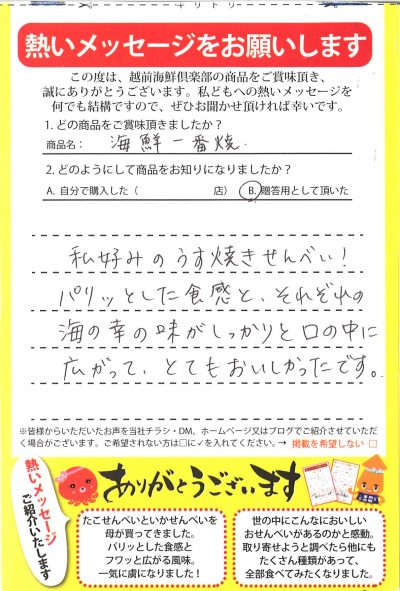 キリトリ
熱いメッセージをお願いします
この度は、越前海鮮倶楽部の商品をご賞味頂き、
誠にありがとうございます。私どもへの熱いメッセージを
何でも結構ですので、ぜひお聞かせ頂ければ幸いです。
1. どの商品をご賞味頂きましたか？
商品名： 海鮮一番焼.
2. どのようにして商品をお知りになりましたか？
A. 自分で購入した（ 店） B. 贈答用として頂いた
私好みのうす焼きせんべい！
パリッとした食感と、それぞれの
海の幸の味がしっかりと口の中に
広がって、とてもおいしかったです。
※皆様からいただいたお声を当社チラシ・DM、ホームページ又はブログでご紹介させていただ
く場合がございます。ご希望されない方は□に✓を入れてください。→ 掲載を希望しない □
熱いメッセージ
ご紹介いたします
ありがとうございます
たこせんべいといかせんべいを
母が買ってきました。
パリッとした食感と
フワッと広がる風味。
一気に虜になりました！
世の中にこんなにおいしい
おせんべいがあるのかと感動。
取り寄せようと調べたら他にも
たくさん種類があって、
全部食べてみたくなりました。